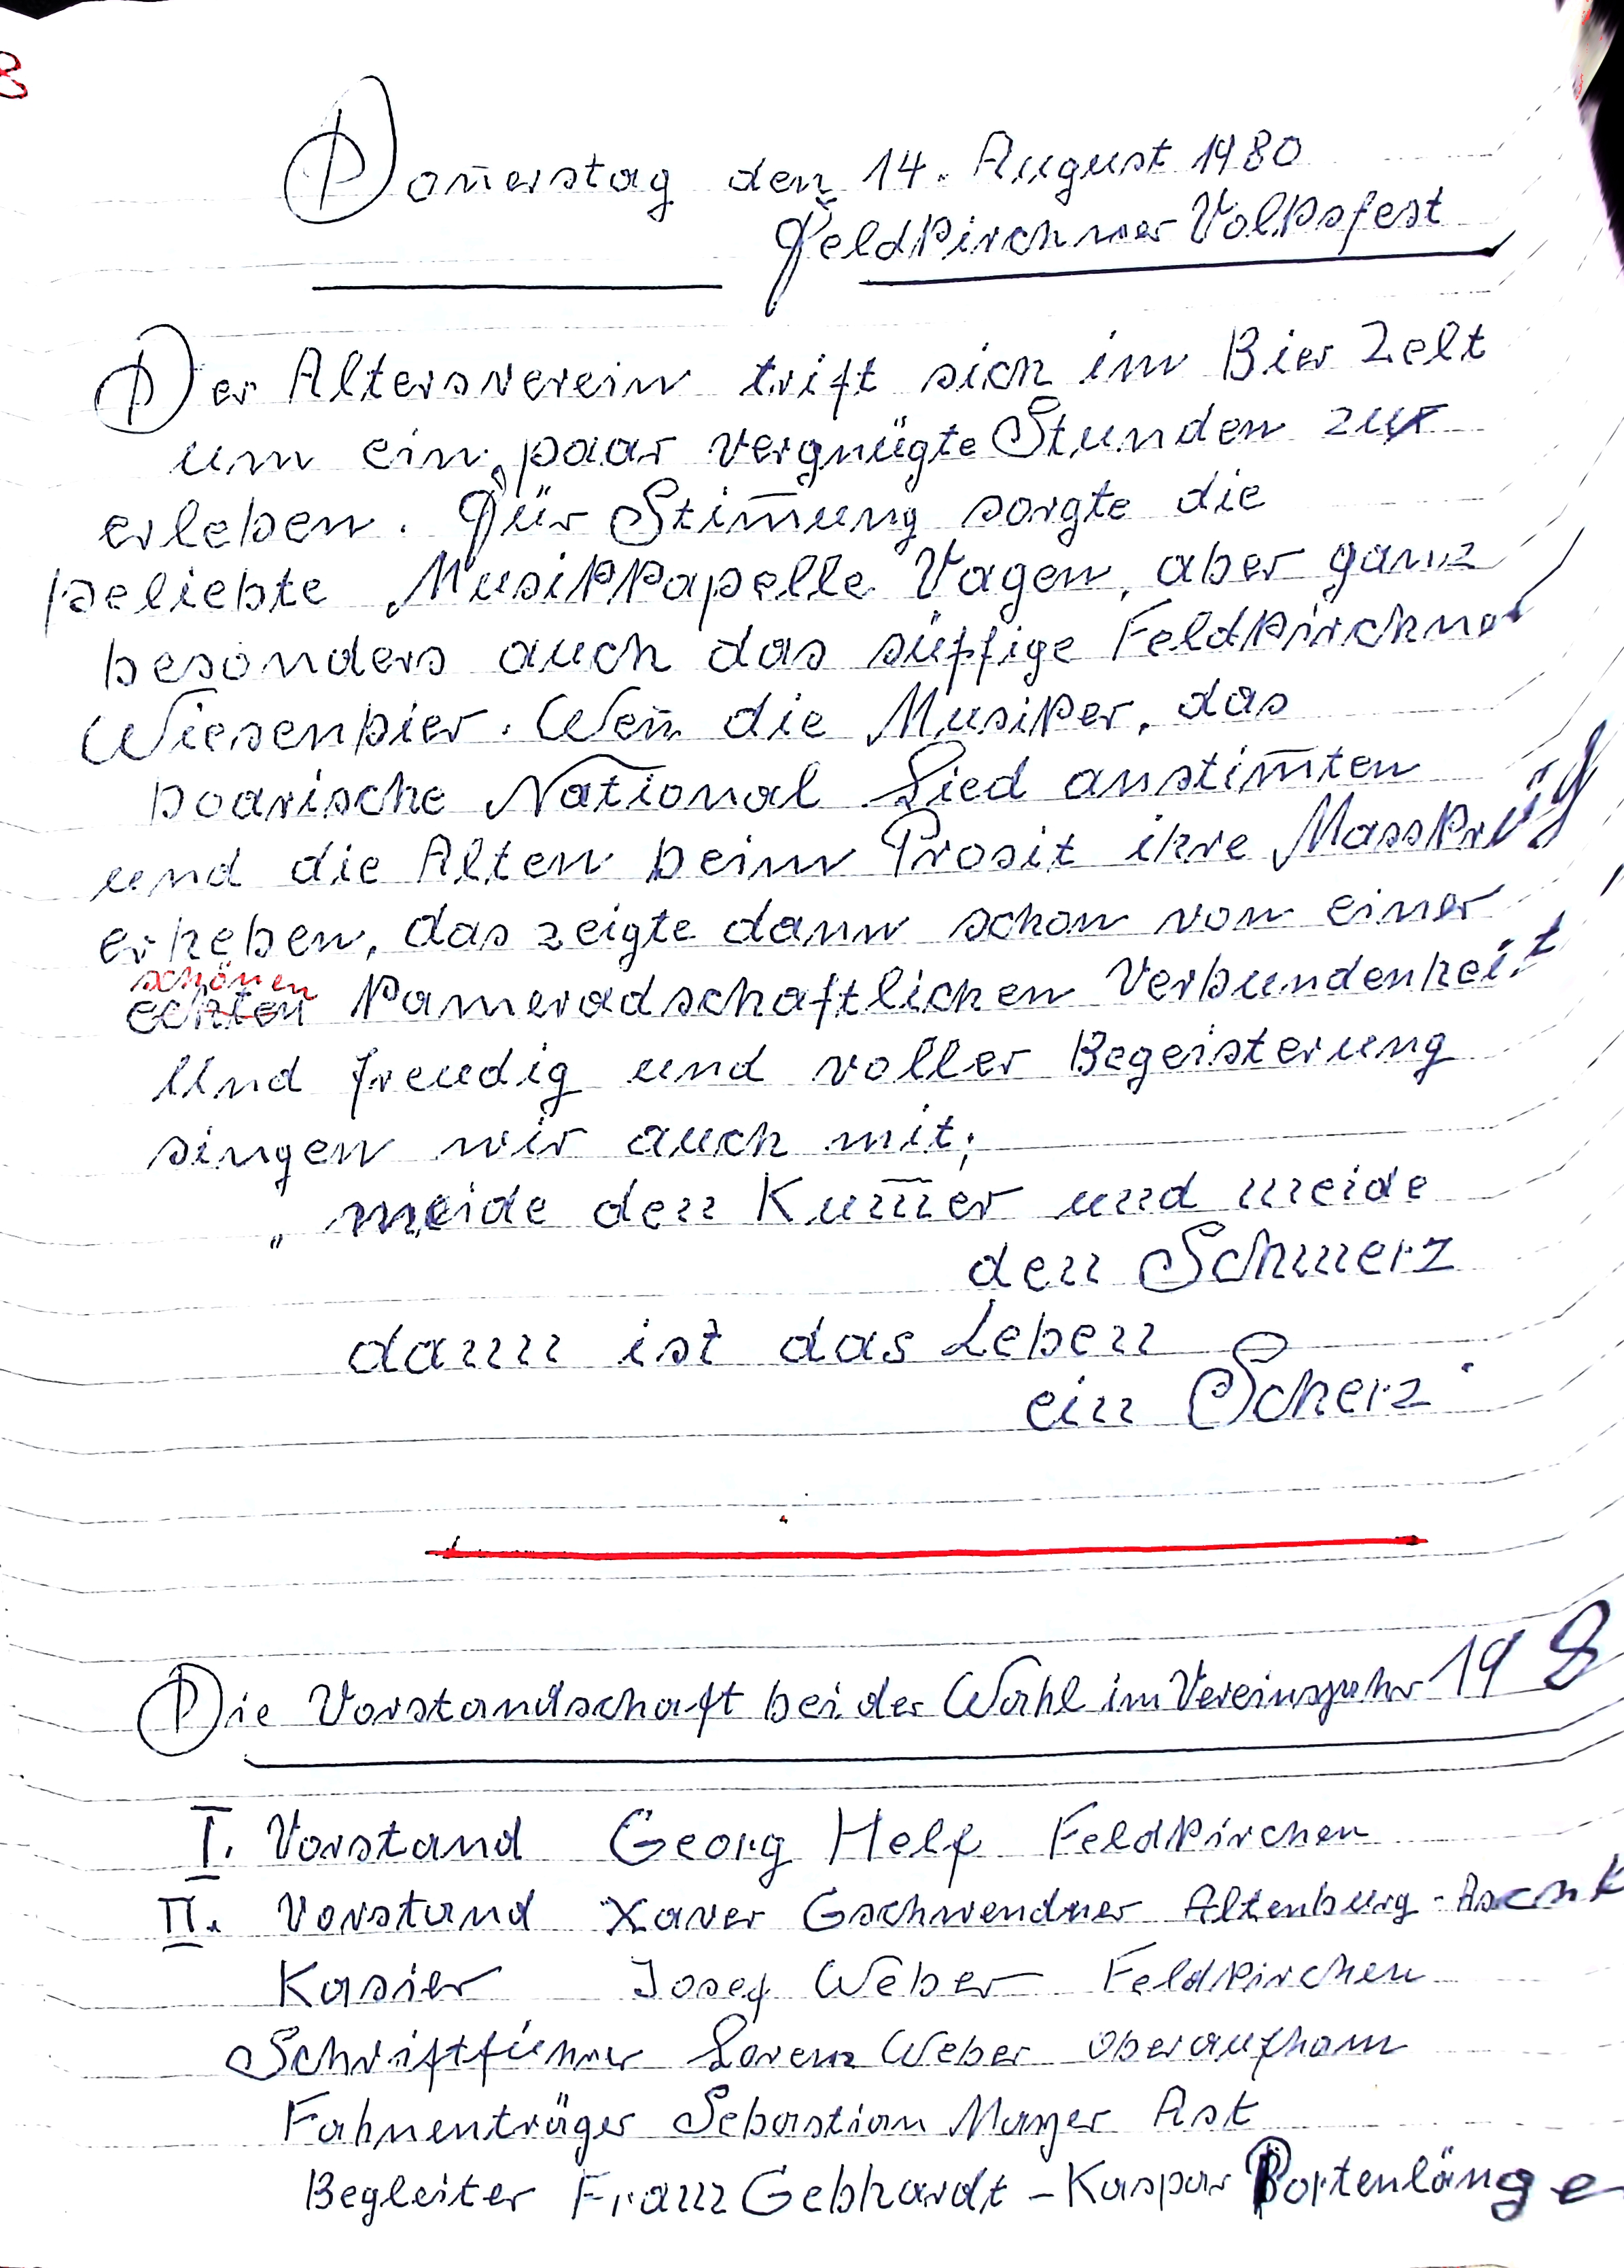 8
Doñerstag den 14. August 1980
Feldkirchner Volksfest
Der Altersverein trift sich im Bier Zelt
um ein paar vergnügte Stunden zu
erleben. Für Stim̄ung sorgte die
beliebte Musikkapelle Vagen, aber ganz
besonders auch das süffige Feldkirchner
Wiesenbier. Wen̄ die Musiker, das
boarische National Lied anstim̄ten
und die Alten beim Prosit ihre Masskrüg
erheben, das zeigte dann schon von einer
schönen
echten kameradschaftlichen Verbundenheit
Und freudig und voller Begeisterung
singen wir auch mit;
„ meide den Kum̄er und meide
den Schmerz
dann ist das Leben
ein Scherz"
Die Vorstandschaft bei der Wahl im Vereinsjahr 198
I. Vorstand Georg Helf Feldkirchen
II. Vorstand Xaver Gschwendner Altenburg -
Kasier Josef Weber Feldkirchen
Schriftführer Lorenz Weber Oberaufham
Fahnenträger Sebastian Mayer Ast
Begleiter Franz Gebhardt - Kaspar Portenlänge